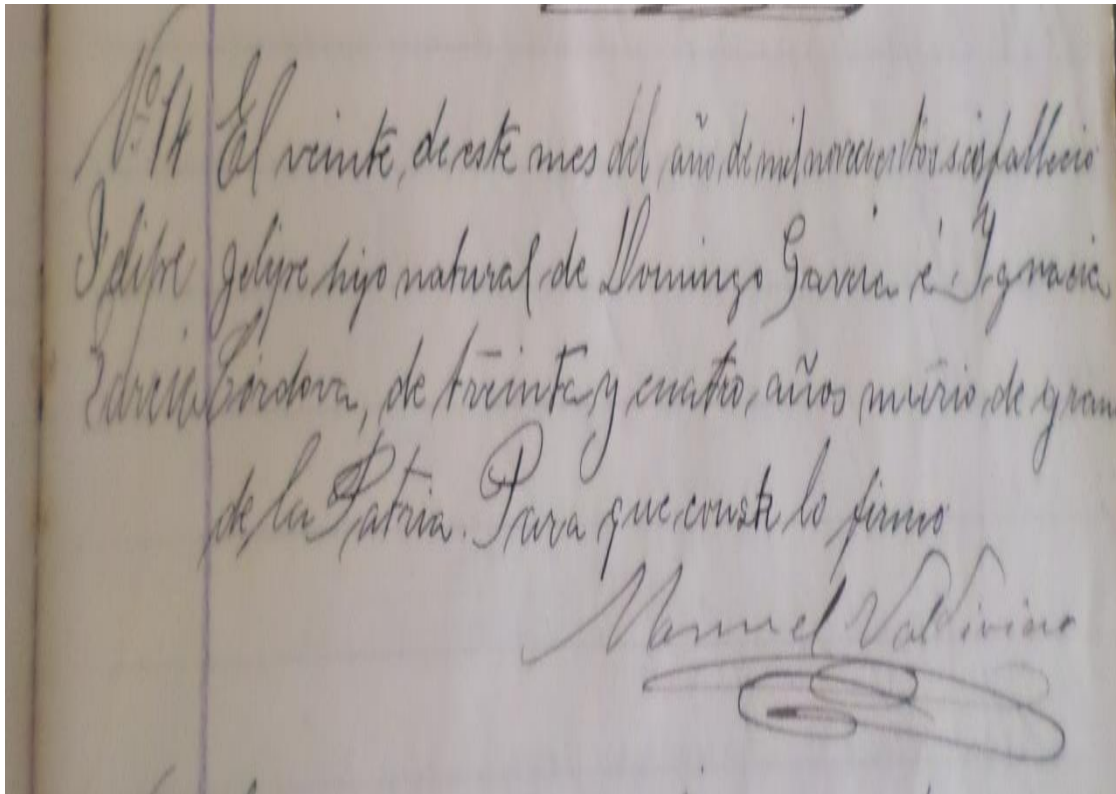 Nº 14 El veinte, de este mes del año, de mil novecientos seis fallecio
Felipe Felipe hijo natural de Domingo Garcia é Ygnacia
Garcia Córdova, de treinta y cuatro, años murio, de gran
de la Patria. Para que conste lo firmo
Manuel Valdivino